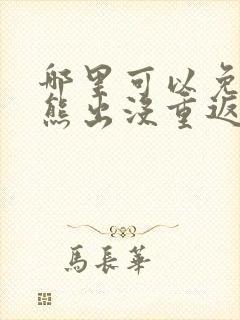 哪里可以免
熊出没重返
馬長華